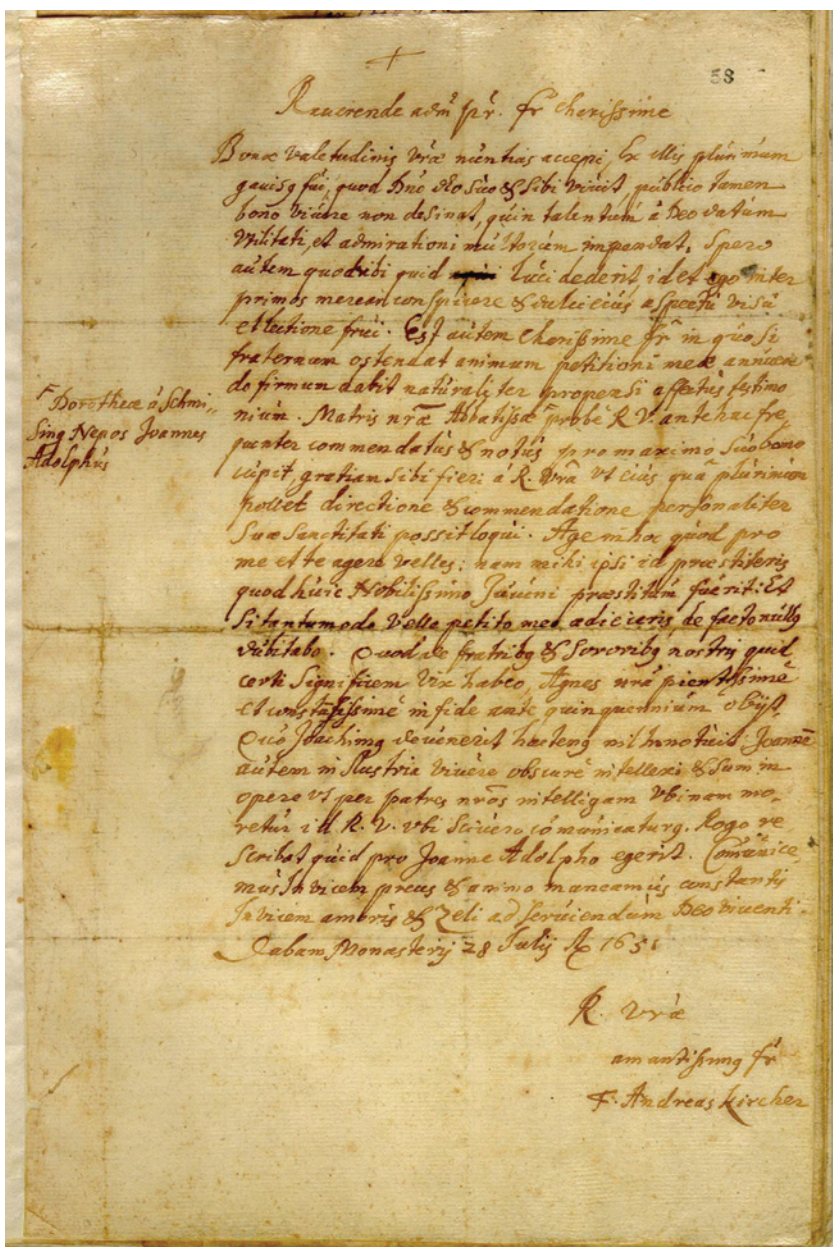 58
Reuerende adm̃ pr̃. fr̃ charissime
Bonæ valetudinis vr̃æ nuntias accepi, Ex illis plurimum
gauisꝯ fui, quod Dno deo suo & sibi viuit, publico tamen
bono viuere non desinat, quin talentum à Deo datum
Vtilitati, et admirationi multorum impendat. Spero
autem quod sibi quid luci dederit, id et ego inter
primos merear conspicere & dulci eius aspectu visu
et lectione frui. Est autem charissime fr̃ in quo si
fraternum ostendat animum petitioni meæ annuen
do firmum dabit naturaliter propensi affectus testimo
nium. Matris nr̃æ Abbatissæ probè R.V. antehac fre,
quenter commendatus & notus pro maximo suo bono
cupit, gratiam sibi fieri á R. Vr̃a vt eius quã plurimum
pollet directione & commendatione personaliter
Suæ Sanctitati possit loqui. Age in hoc quod pro
me et te agere velles: nam mihi ipsi id præstiteris
quod huic Nobilissimo Juueni præstitum fuerit: Et
si tantumodo velle petito meo adieceris, de facto nullꝯ
dubitabo. Quod de fratribꝯ & sororibꝯ nostris quid
certi significem vix habeo, Agnes nr̃a pientissimè
et constãtissimè in fide ante quinquennium obijt,
Quo Joachimꝯ deuenerit hactenꝯ nil innotuit Joannẽ
autem in Austria viuere obscurè intellexi & sum in
opere vt per patres nr̃os intelligam vbinam mo,
retur id R. V. vbi sciuero cõmunicaturꝯ. Rogo re
scribat quid pro Joanne Adolpho egerit. Comũnice,
mus In vicem preces & animo maneamus constantis
In vicem amoris & zeli ad seruiendum Deo viuenti.
Dabam Monasterij 28 Julij Aº 1651
R. Vr̃æ
amantissimꝯ fr̃
F. Andreas Kircher
Dorotheæ à Schmi,,
sing Nepos Joannes
Adolphus